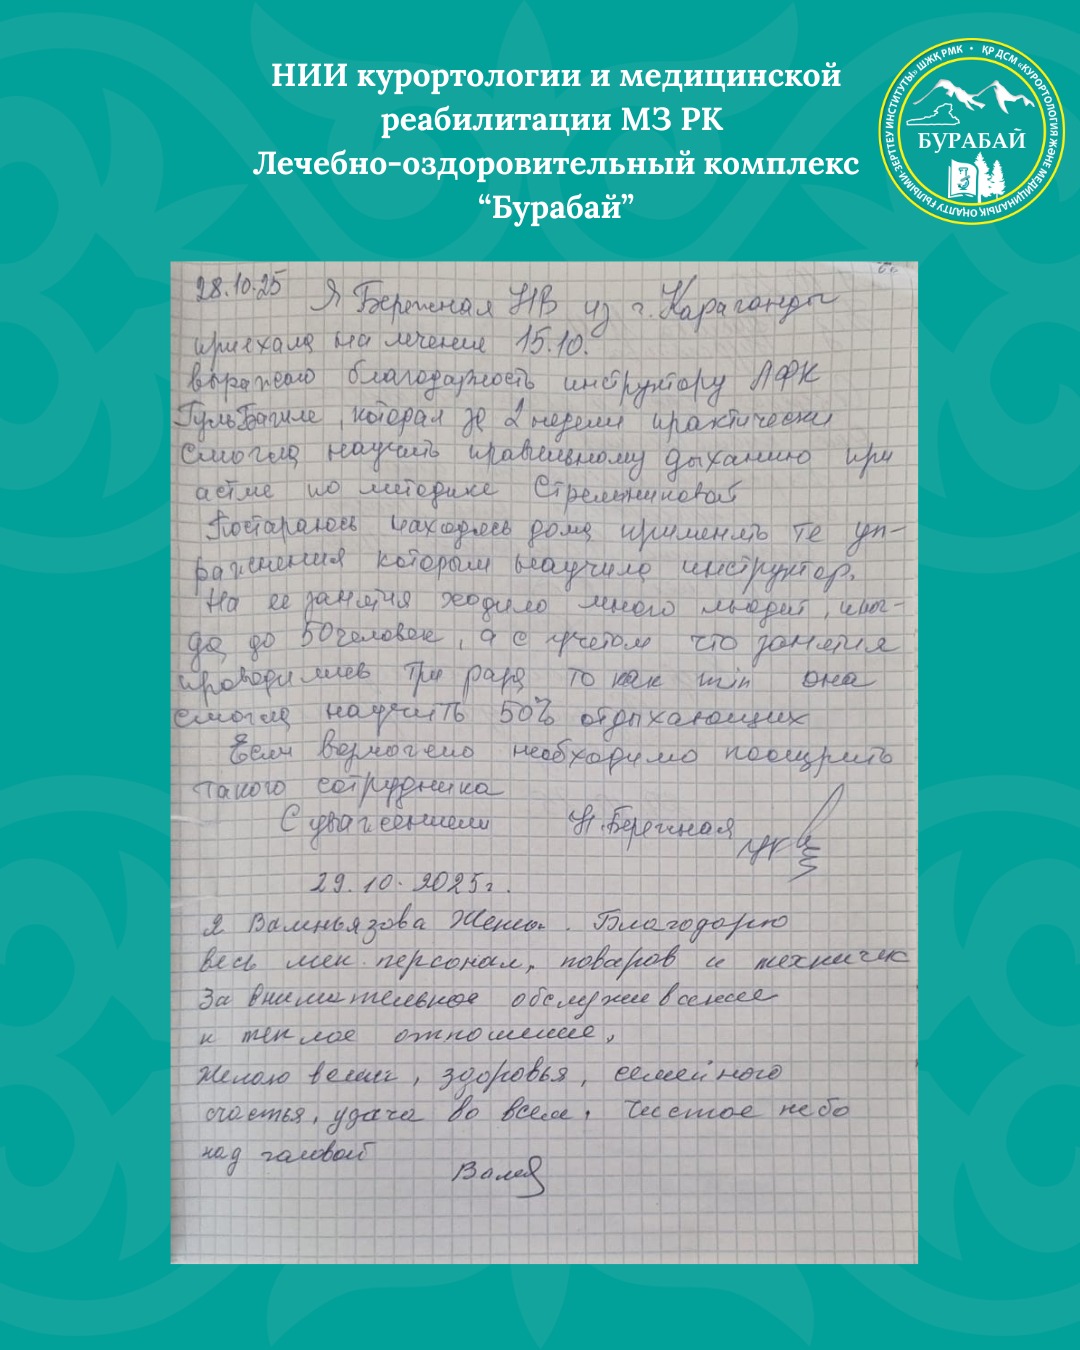 НИИ курортологии и медицинской
реабилитации МЗ РК
Лечебно-оздоровительный комплекс
“Бурабай”
ҚР ДСМ «КУРОРТОЛОГИЯ ЖӘНЕ МЕДИЦИНАЛЫҚ ОҢАЛТУ ҒЫЛЫМИ-ЗЕРТТЕУ ИНСТИТУТЫ» ШЖҚ РМК
БУРАБАЙ
28.10.25 Я Бережная НВ из г. Караганды
приехала на лечение 15.10.
выражаю благодарность инструктору ЛФК
ГульБагиле, которая за 2 недели практически
смогла научить правильному дыханию при
астме по методике Стрельниковой
Постараюсь находясь дома применять те уп-
ражнения которым научила инструктор.
На ее занятия ходило много людей, иног-
да до 50 человек, а с учетом что занятия
проводились три раза то как min она
смогла научить 50% отдыхающих
Если возможно необходимо поощрить
такого сотрудника
С уважением Н.Бережная
29.10.2025г.
Я Женис. Благодарю
весь мед. персонал, поваров и техничек
За внимательное обслуживание
и теплое отношение,
Желаю всем, здоровья, семейного
счастья, удача во всем, Чистое небо
над головой